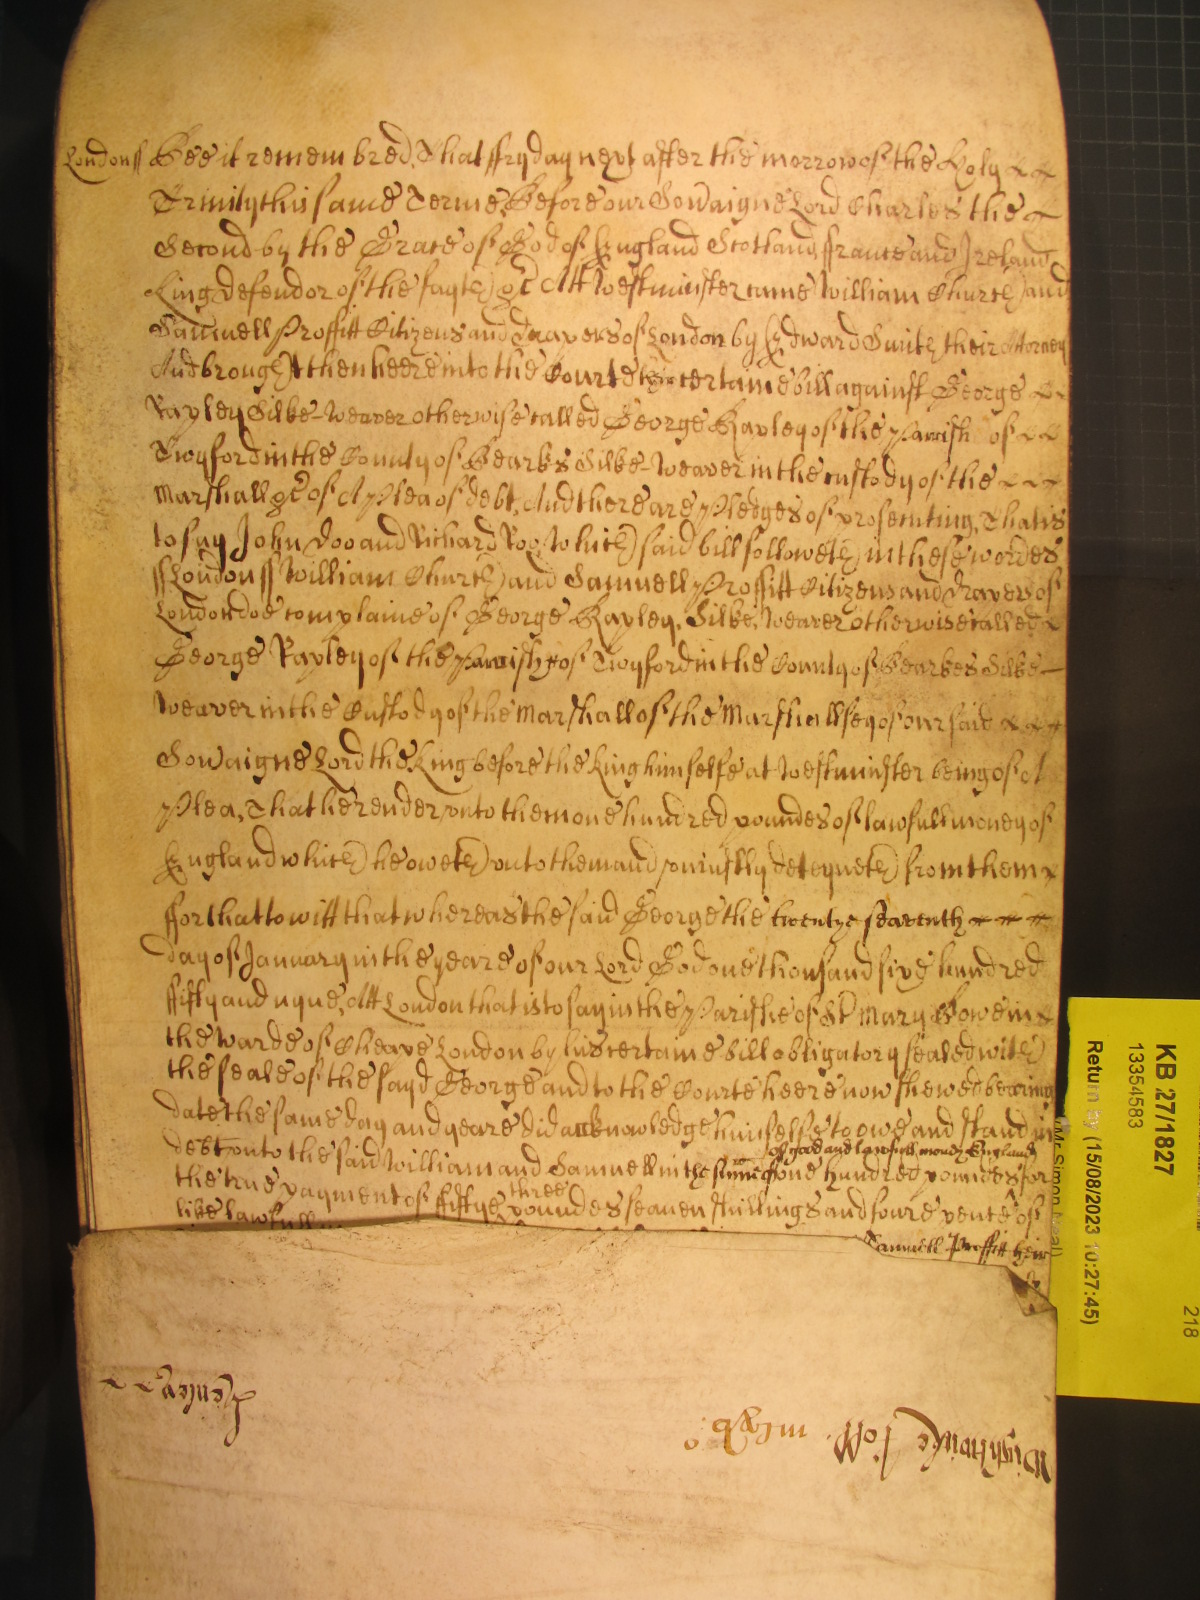 London ss Bee it remembred That ffryday next after the morrow of the Holy
Trinity this same Terme Before our Sov'aigne Lord Charles the
Second by the Grace of God of England Scotland ffrance and Ireland
King defendor of the fayth &c Att Westminster came William Church and
Samuell Proffitt Citizens and Drapers of London by Edward Smith their Attorney
And brought then heere into the Courte their certaine bill against George
Rapley Silke-Weaver otherwise called George Rapley of the Parrish of
Twyford in the County of Bearks Silke-Weaver in the custody of the
Marshall &c of A Plea of debt, And there are Pledges of prosecuting, That is
to say John Doo and Richard Roo, Which said bill followeth in these wordes
ss London ss William Church and Samuell Proffitt Citizens and Drapers of
London doe complaine of George Rapley, Silke, Weaver otherwise called
George Rapley of the Parrish of Twyford in the County of Bearkes Silke-
Weaver in the Custody of the Marshall of the Marshallsey of our said
Sov'aigne Lord the King before the King himselfe at Westminster being of A
Plea, That he render unto them one hundred poundes of lawfull money of
England which he oweth unto them and uniustly deteyneth from them
ffor that to witt that whereas the said George the twentye seaventh
day of January in the yeare of our Lord God one thousand six hundred
fifty and nyne, Att London that is to say in the Parishe of St Mary Bowe in
the warde of Cheape London by his certaine bill obligatory sealed with
the seale of the sayd George and to the Courte heere now shewed bearing
date the same day and yeare did acknowledge himselfe to owe and stand in
of good and lawfull money England
debt unto the said William and Samuell in the summe of one hundred poundes for
the true payment of fiftye three poundes seaven shillings and foure pence of
like lawfull
Samuell Proffitt their
Wightwicke Roll
KB 27/1827
13354583
Return by (15/08/2023 10:27:45)
218